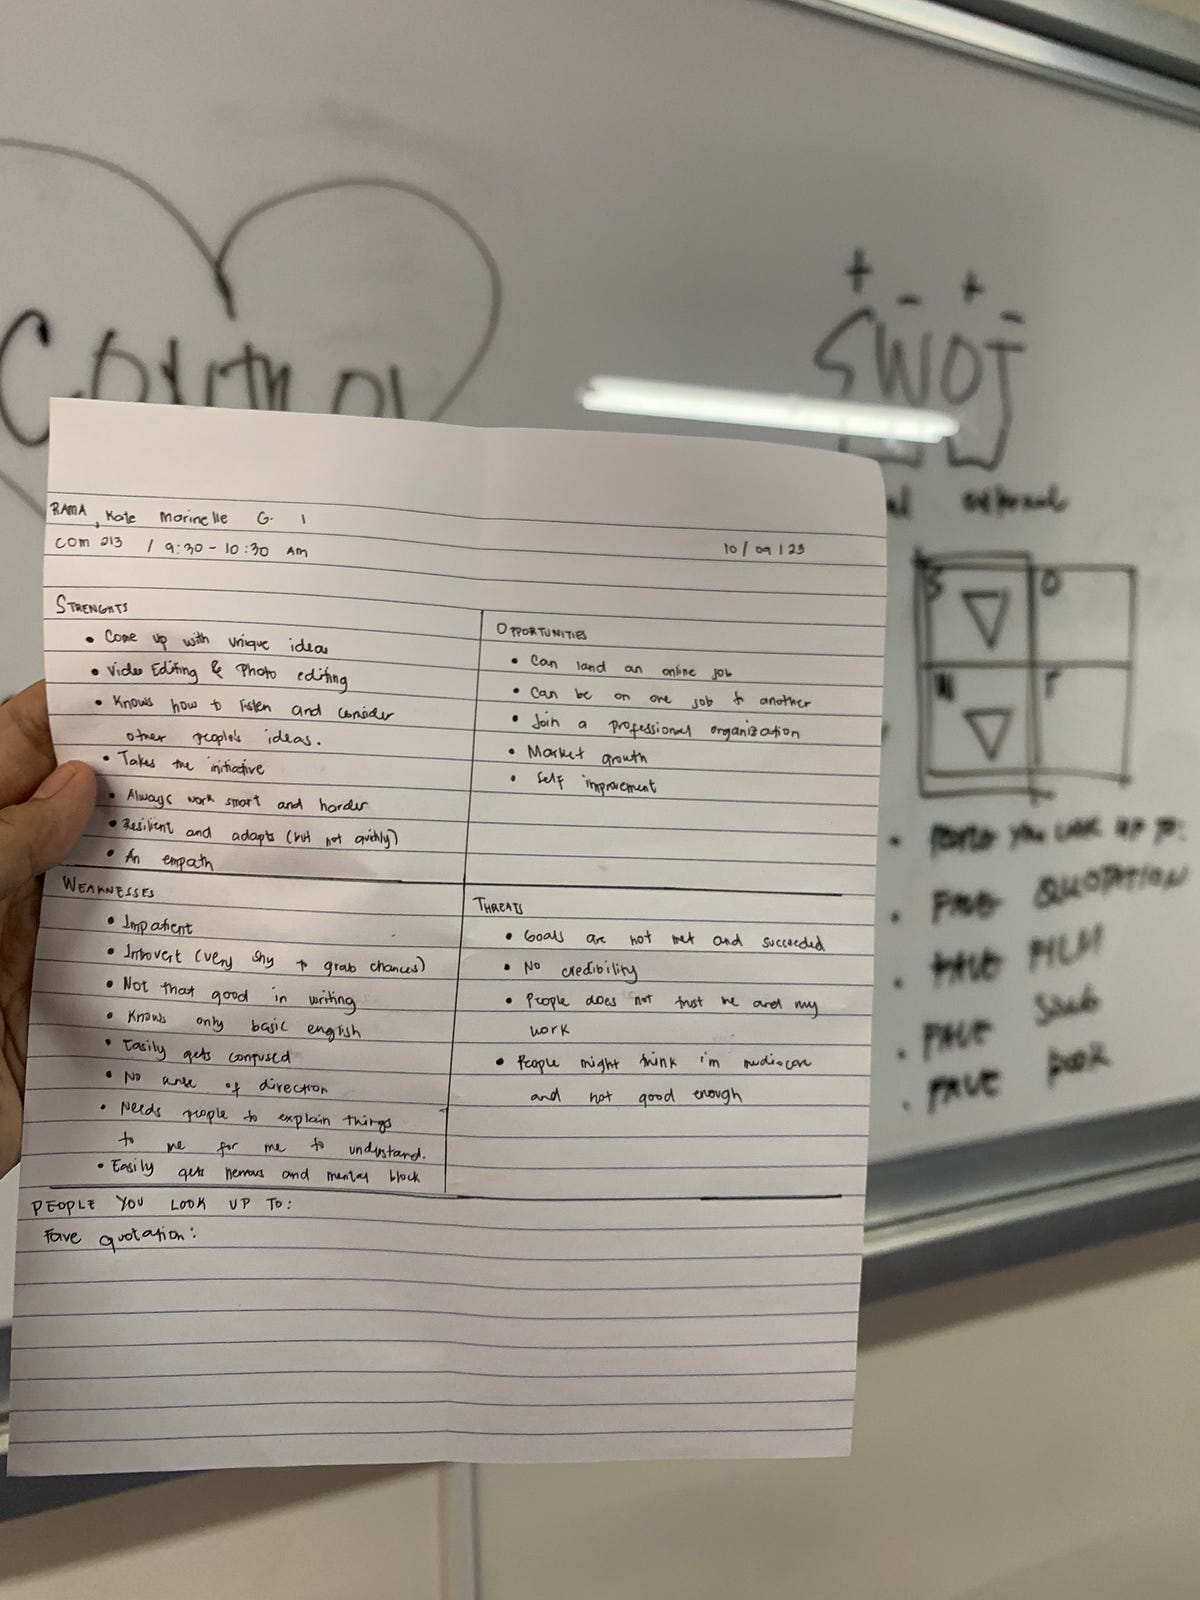 Control
+ - + -
SWOT
external
S O
W T
PEOPLE YOU LOOK UP TO:
FAVE QUOTATION
FAVE FILM
FAVE SONG
FAVE BOOK
RAMA, Kate Marinelle G.
COM 213 / 9:30 - 10:30 AM
10/09/23
STRENGHTS
• Come up with unique ideas
• Video Editing & Photo editing
• Knows how to listen and consider
other people's ideas.
• Takes the initiative
• Always work smart and harder
• Resilient and adapts (but not quickly)
• An empath
OPPORTUNITIES
• Can land an online job
• Can be on one job to another
• Join a professional organization
• Market growth
• Self improvement
WEAKNESSES
• Impatient
• Introvert (very shy to grab chances)
• Not that good in writing
• Knows only basic english
• Easily gets confused
• No sense of direction
• Needs people to explain things
to me for me to understand.
• Easily gets nervous and mental block
THREATS
• Goals are not met and succeeded
• No credibility
• People does not trust me and my
work
• People might think i'm mediocre
and not good enough
PEOPLE YOU LOOK UP TO:
Fave quotation: